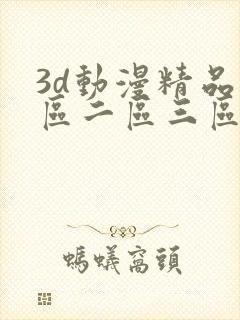 3d動漫精品
區二區三區
螞蟻窩頭